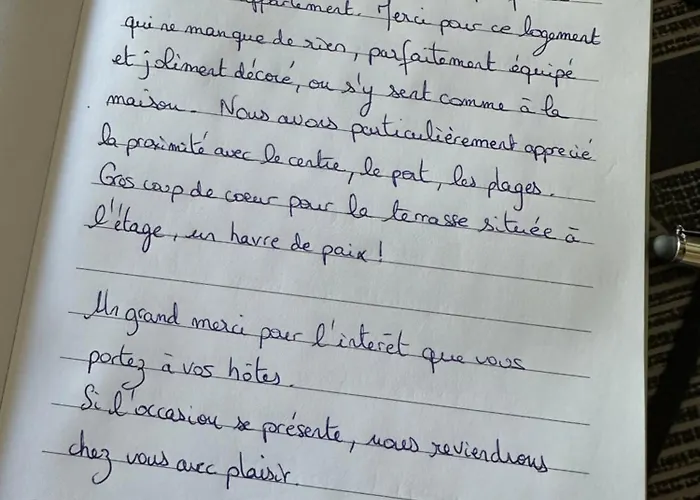 appartement. Merci pour ce logement
qui ne manque de rien, parfaitement équipé
et joliment décoré, on s'y sent comme à la
maison. Nous avons particulièrement apprecié
la proximité avec le centre, le port, les plages.
Gros coup de coeur pour la terrasse située à
l'étage, un havre de paix !
Un grand merci pour l'interêt que vous
portez à vos hôtes.
Si l'occasion se présente, nous reviendrons
chez vous avec plaisir.